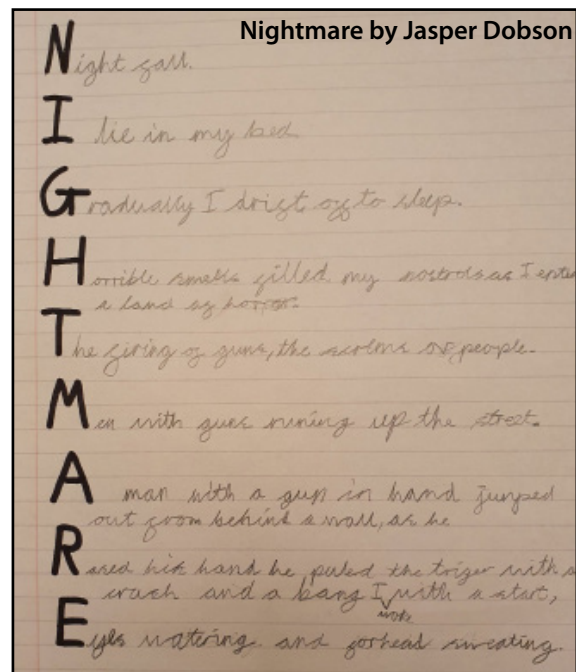 Nightmare by Jasper Dobson
Night fall.
I lie in my bed
Gradually I drift off to sleep.
Horrible smells filled my nostrols as I enter
a land of horror.
The firing of guns, the of people.
Men with guns runing up the street.
A man with a gun in hand jumped
out from behind a wall, as he
Rased his hand he puled the triger with a
crack and a bang I woke with a start,
Eyes watering and forhead sweating.